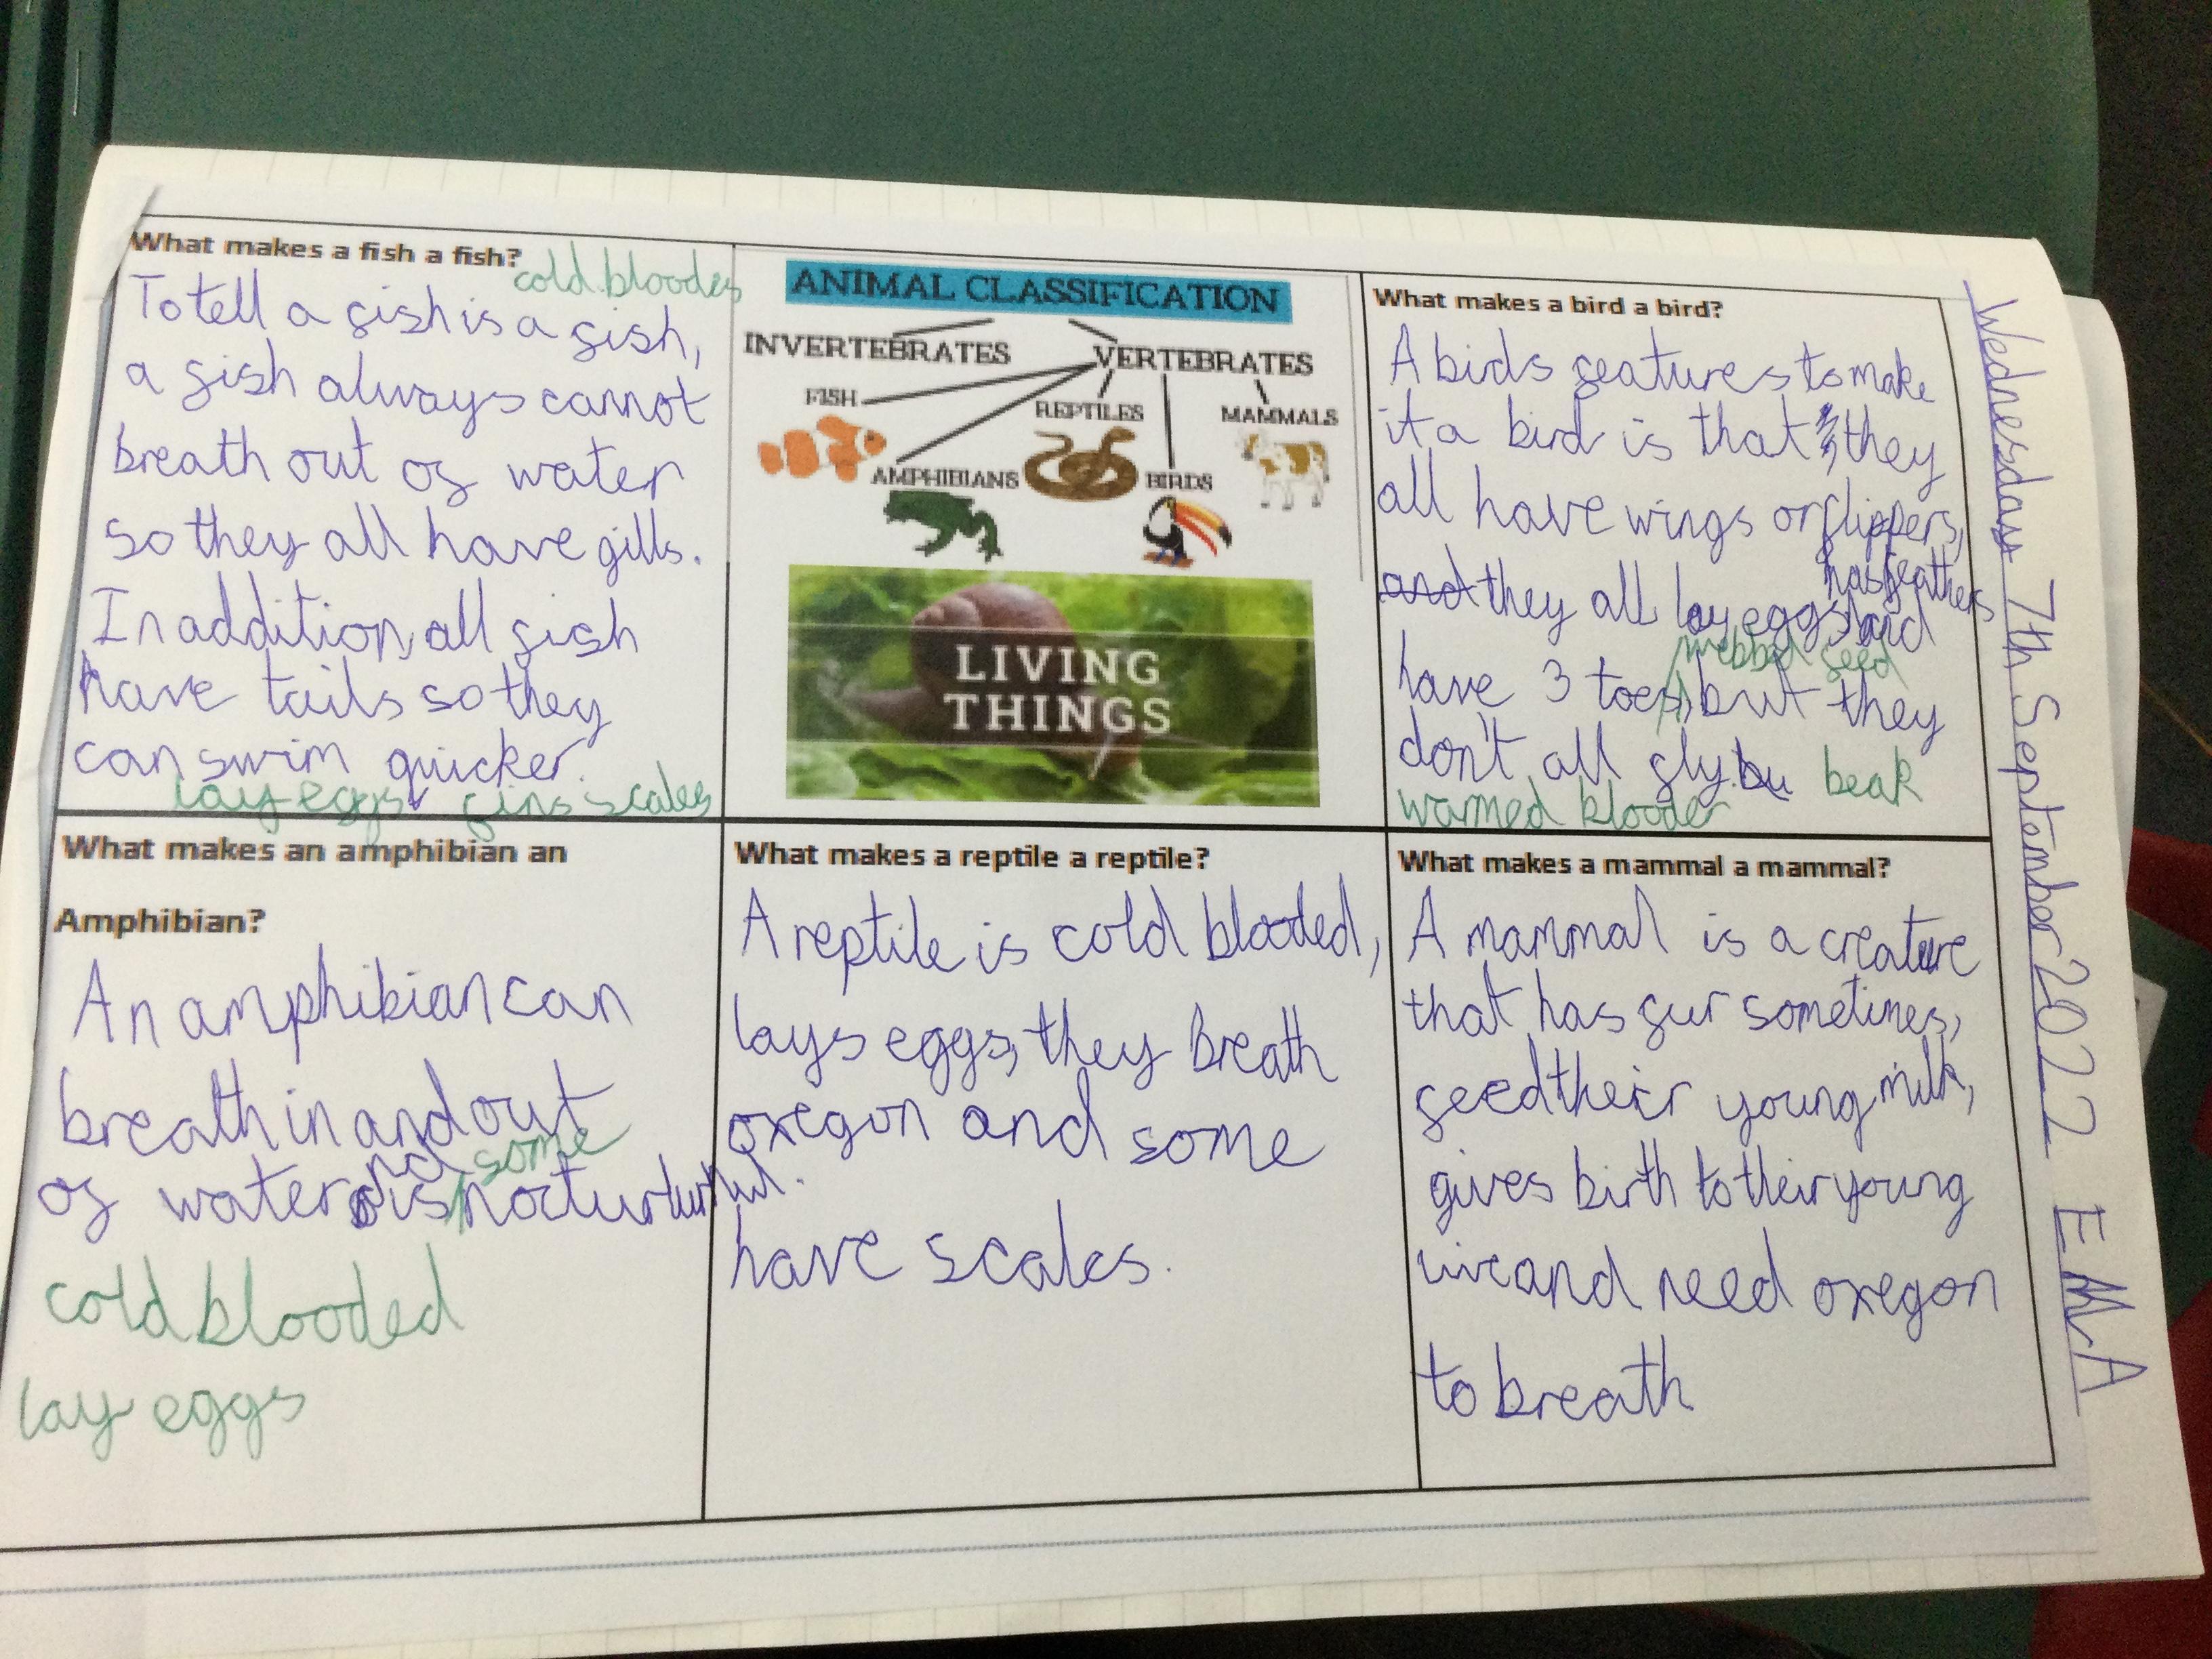 What makes a fish a fish?
cold.blooded
To tell a fish is a fish,
a fish always cannot
breath out of water
so they all have gills.
In addition, all fish
have tails so they
can swim quicker.
lay eggs fins scales
ANIMAL CLASSIFICATION
INVERTEBRATES
VERTEBRATES
FISH
REPTILES
MAMMALS
AMPHIBIANS
BIRDS
LIVING
THINGS
What makes a bird a bird?
A birds features to make
it a bird is that they
all have wings or flippers,
has feathers
and they all lay eggs and
webbed feed
have 3 toes, but they
don't all fly. bu beak
warmed blooder
What makes an amphibian an
Amphibian?
An amphibian can
breath in and out
some
of water and is
cold blooded
lay eggs
What makes a reptile a reptile?
A reptile is cold blooded,
lays eggs, they breath
oxegon and some
have scales.
What makes a mammal a mammal?
A mammal is a creature
that has fur sometimes,
feed their young milk,
gives birth to their young
live and need oxegon
to breath
Wednesday 7th September 2022 E M.A